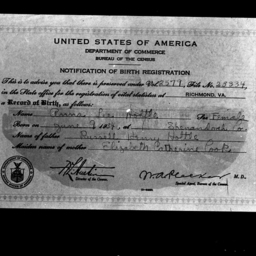 UNITED STATES OF AMERICA
DEPARTMENT OF COMMERCE
BUREAU OF THE CENSUS
NOTIFICATION OF BIRTH REGISTRATION
This is to advise you that there is preserved under Vol. 2577, File No. 25334
in the State office for the registration of vital statistics at RICHMOND, VA.
a Record of Birth, as follows:
Name Lee Sex Female
Born on June at
Name of father Russell Henry
Maiden name of mother Elizabeth Catherine Cooke
Director of the Census.
Special Agent, Bureau of the Census.